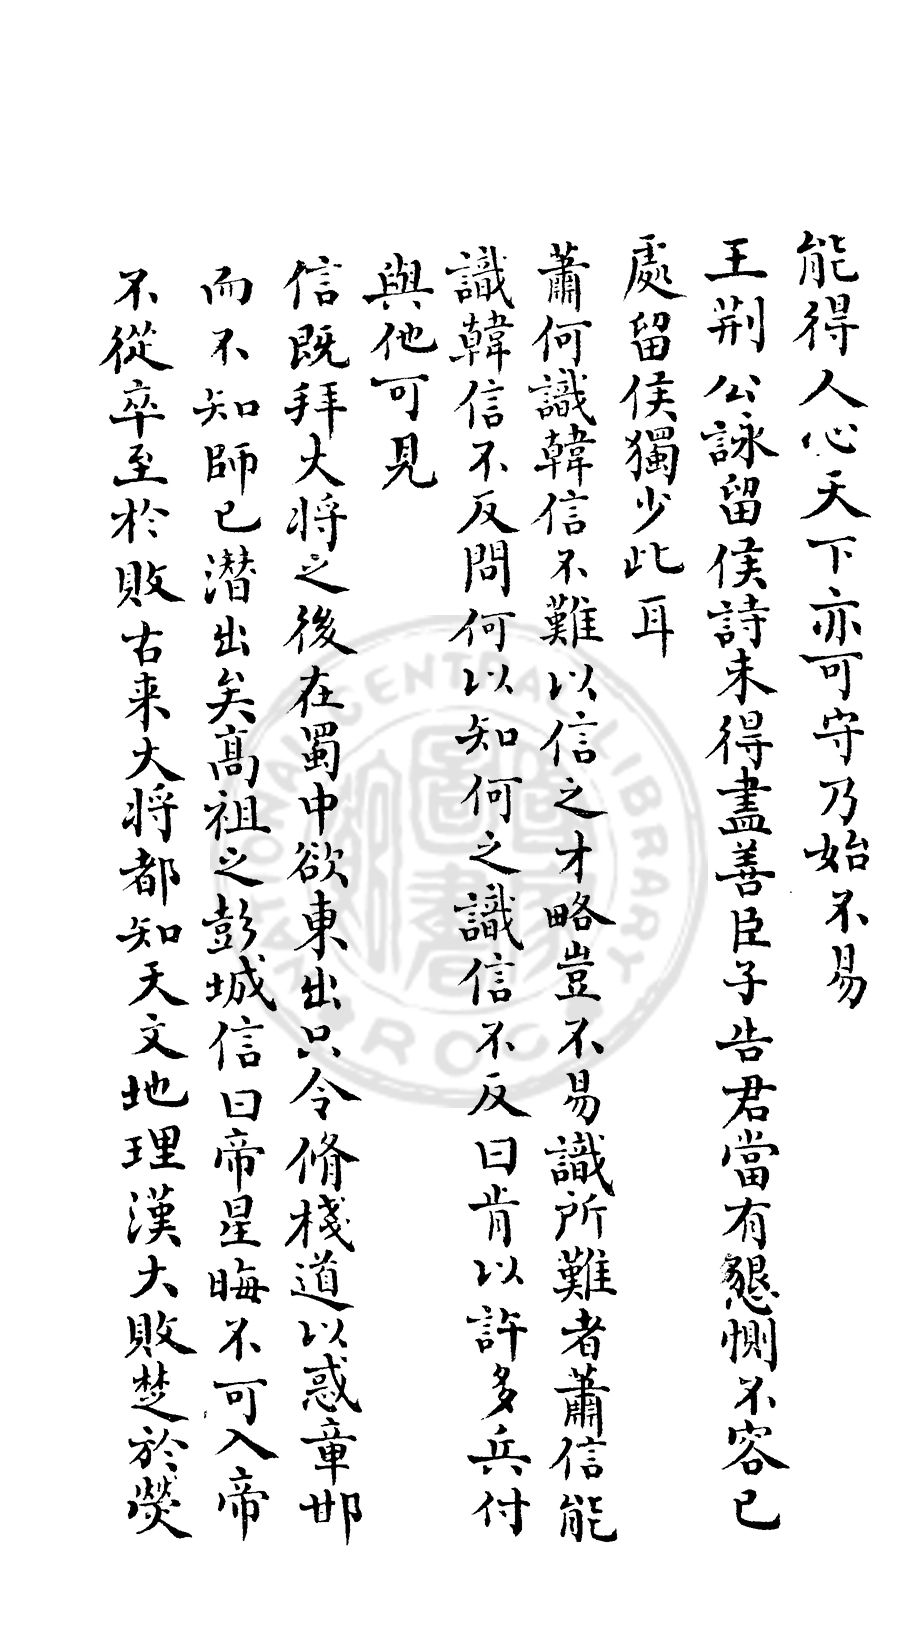 能得人心天下亦可守乃始不易
王荆公詠留侯詩未得盡善臣子告君當有懇惻不容已
處留侯獨少此耳
蕭何識韓信不難以信之才略豈不易識所難者蕭信能
識韓信不反問何以知何之識信不反曰肯以許多兵付
與他可見
信既拜大将之後在蜀中欲東出只令脩棧道以惑章邯
而不知師已潛出矣髙祖之彭城信曰帝星晦不可入帝
不從卒至於敗古来大将都知天文地理漢大敗楚於熒
NATIONAL CENTRAL LIBRARY
TAIWAN R.O.C.